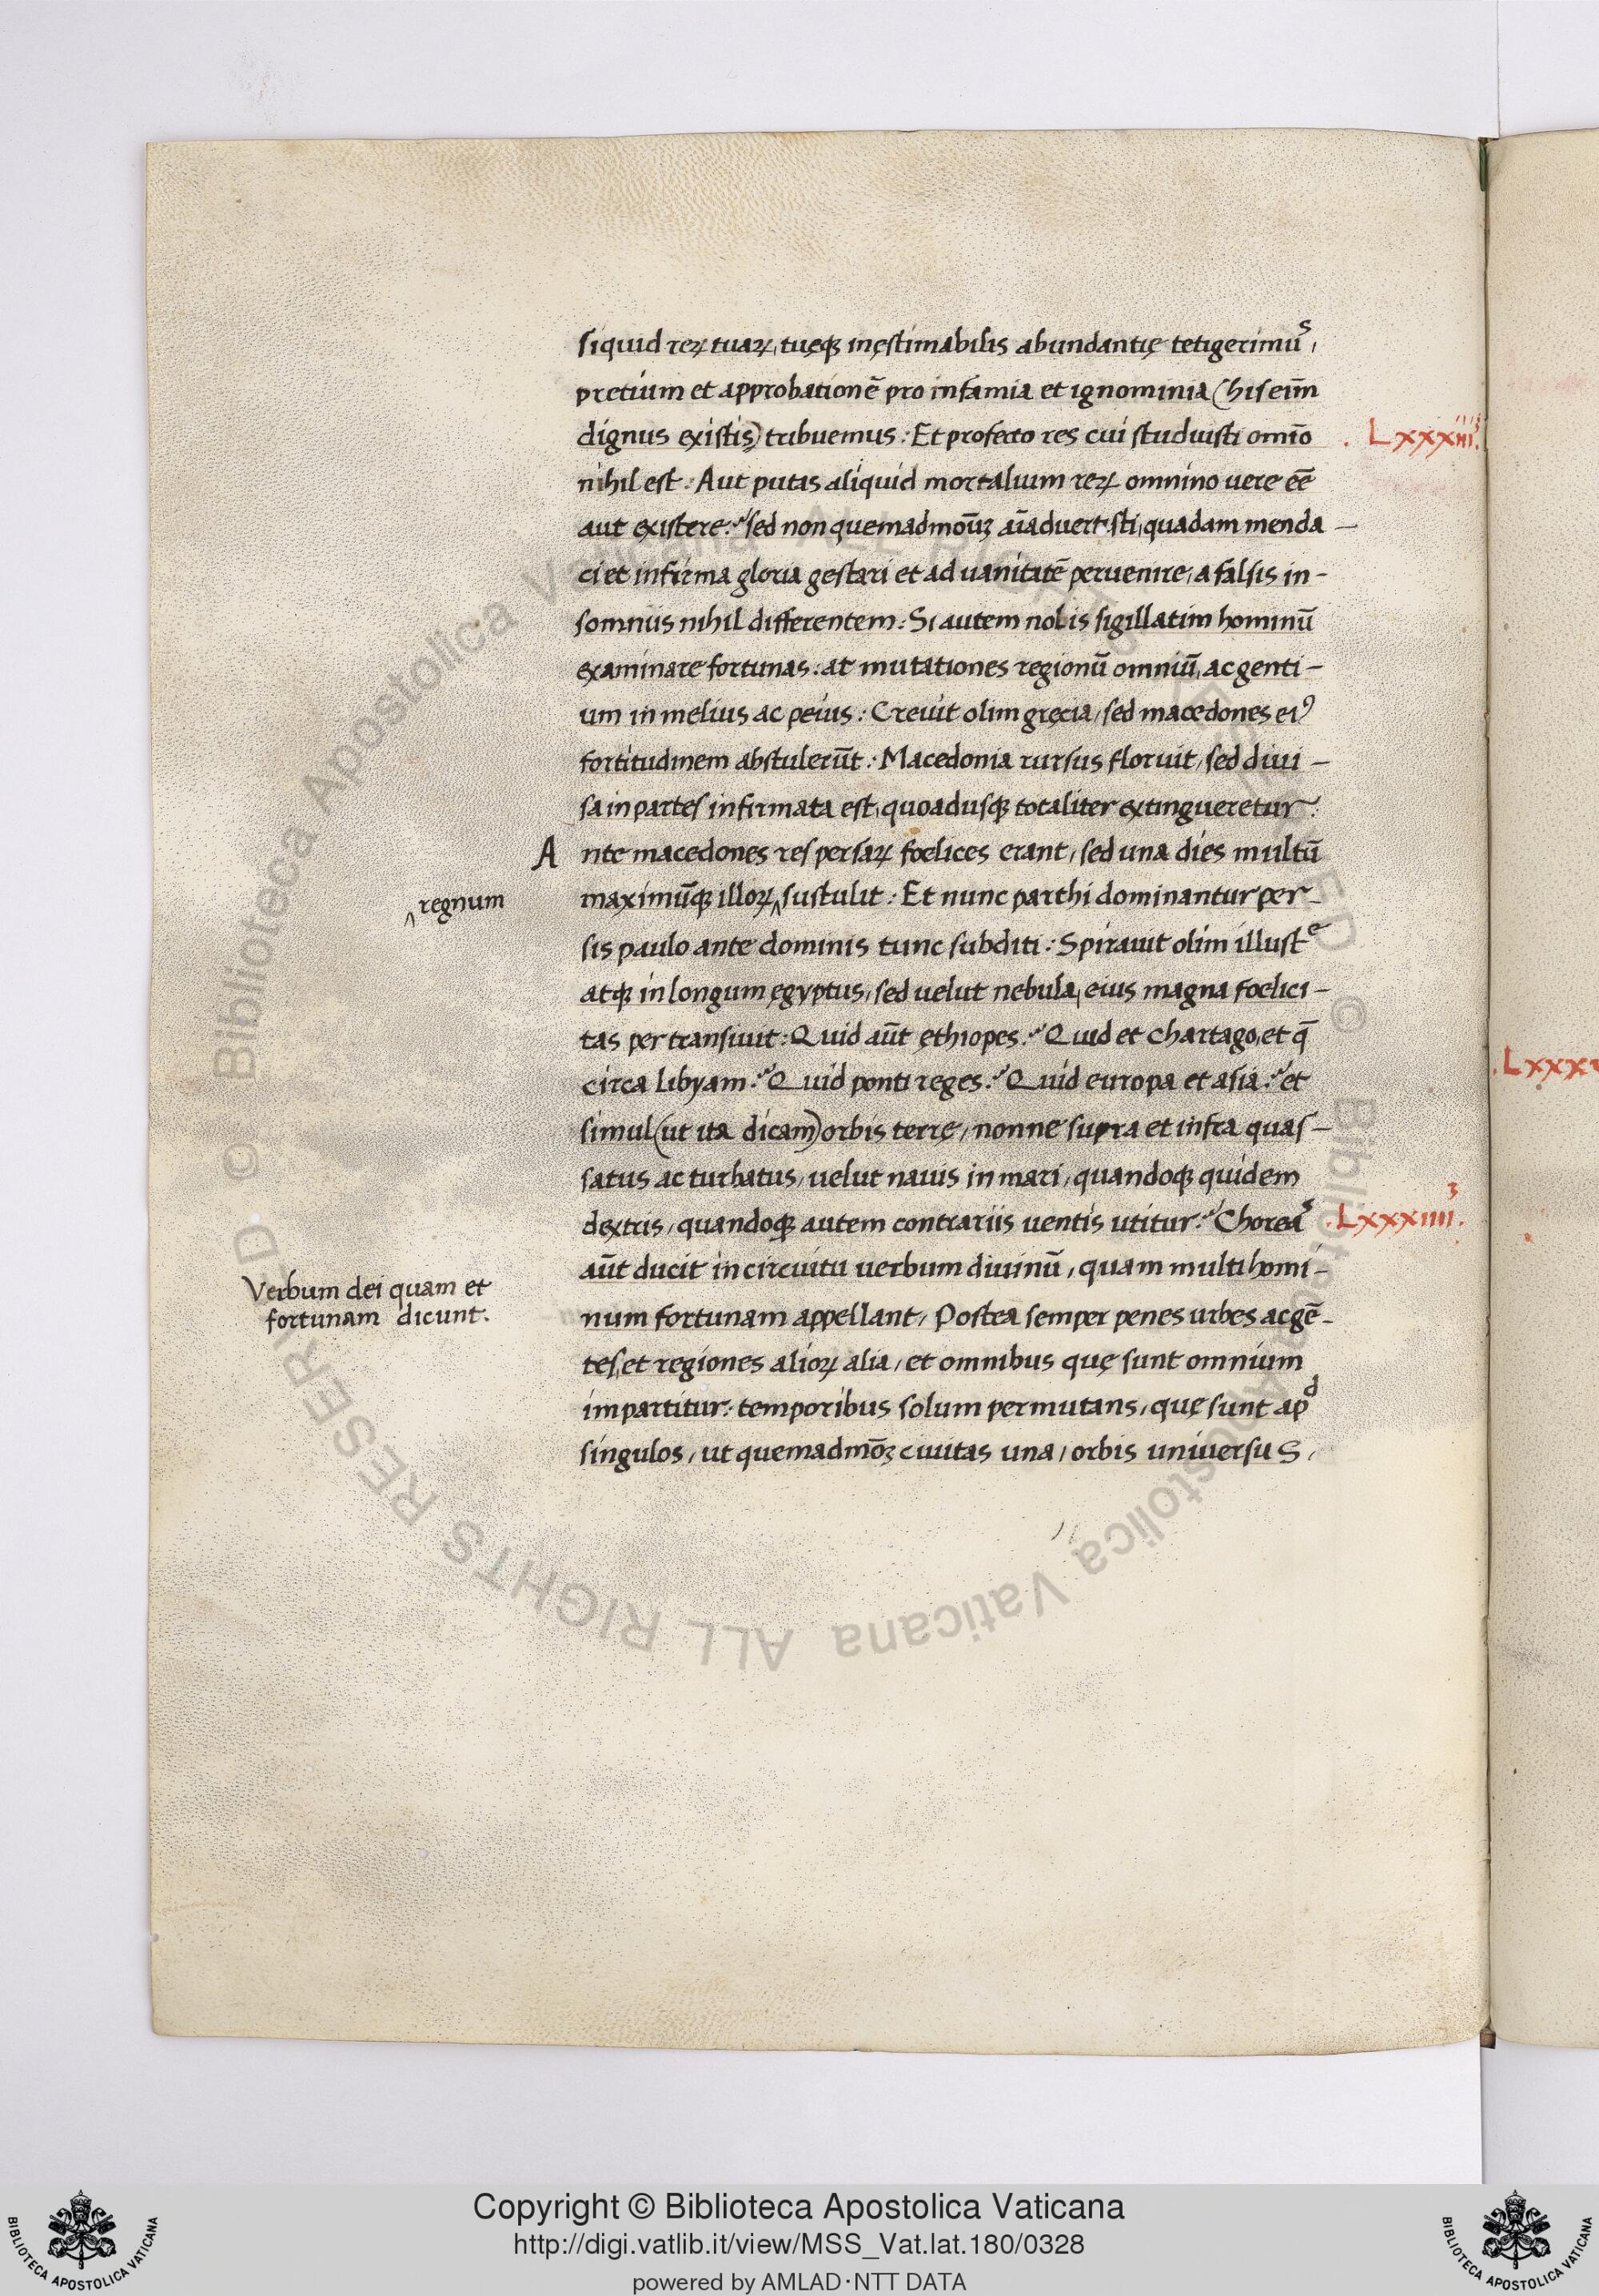 siquid reꝝ tuaꝝ, tuęqꝫ inęstimabilis abundantię tetigerimuˢ,
pretium et approbationē pro infamia et ignominia (his eīm
dignus existis) tribuemus: Et profecto res cui studuisti omīo
. Lxxxiii.
nihil est: Aut putas aliquid mortalium reꝝ omnino uere eē̄
aut existere: sed non quemadmoūꝫ aīaduertisti, quadam menda—
ci et infirma gloria gestari et ad uanitatē peruenire, a falsis in-
somniis nihil differentem: Si autem nolis sigillatim hominū
examinare fortunas: at mutationes regionū omniū, ac genti-
um in melius ac peius: Creuit olim gręcia, sed macedones eiꝰ
fortitudinem abstulerūt: Macedonia rursus floruit, sed diui-
sa in partes infirmata est, quoadusqꝫ totaliter extingueretur:
Ante macedones res persaꝝ foelices erant, sed una dies multū
‸ regnum
maximūqꝫ illoꝝ ‸ sustulit: Et nunc parthi dominantur per-
sis paulo ante dominis tunc subditi: Spirauit olim illustᵉ
atqꝫ in longum ęgyptus, sed uelut nebula, eius magna foelici-
tas pertransiuit: Quid aūt ęthiopes: Quid et chartago, et q̄
circa libyam: Quid ponti reges: Quid europa et asia: et
Lxxx
simul (ut ita dicam) orbis terrę, nonne supra et infra quas-
satus ac turbatus, uelut nauis in mari, quandoqꝫ quidem
dextris, quandoqꝫ autem contrariis uentis utitur: Choreaˢ
. Lxxxiiii.
aūt ducit in circuitu uerbum diuinū, quam multi homi-
Verbum dei quam et
fortunam dicunt.
num fortunam appellant, Postea semper penes urbes ac gē-
tes, et regiones alioꝝ alia, et omnibus quę sunt omnium
impartitur: temporibus solum permutans, quę sunt apᵈ
singulos, ut quemadmōꝫ ciuitas una, orbis uniuersus,
Copyright © Biblioteca Apostolica Vaticana
http://digi.vatlib.it/view/MSS_Vat.lat.180/0328
powered by AMLAD·NTT DATA